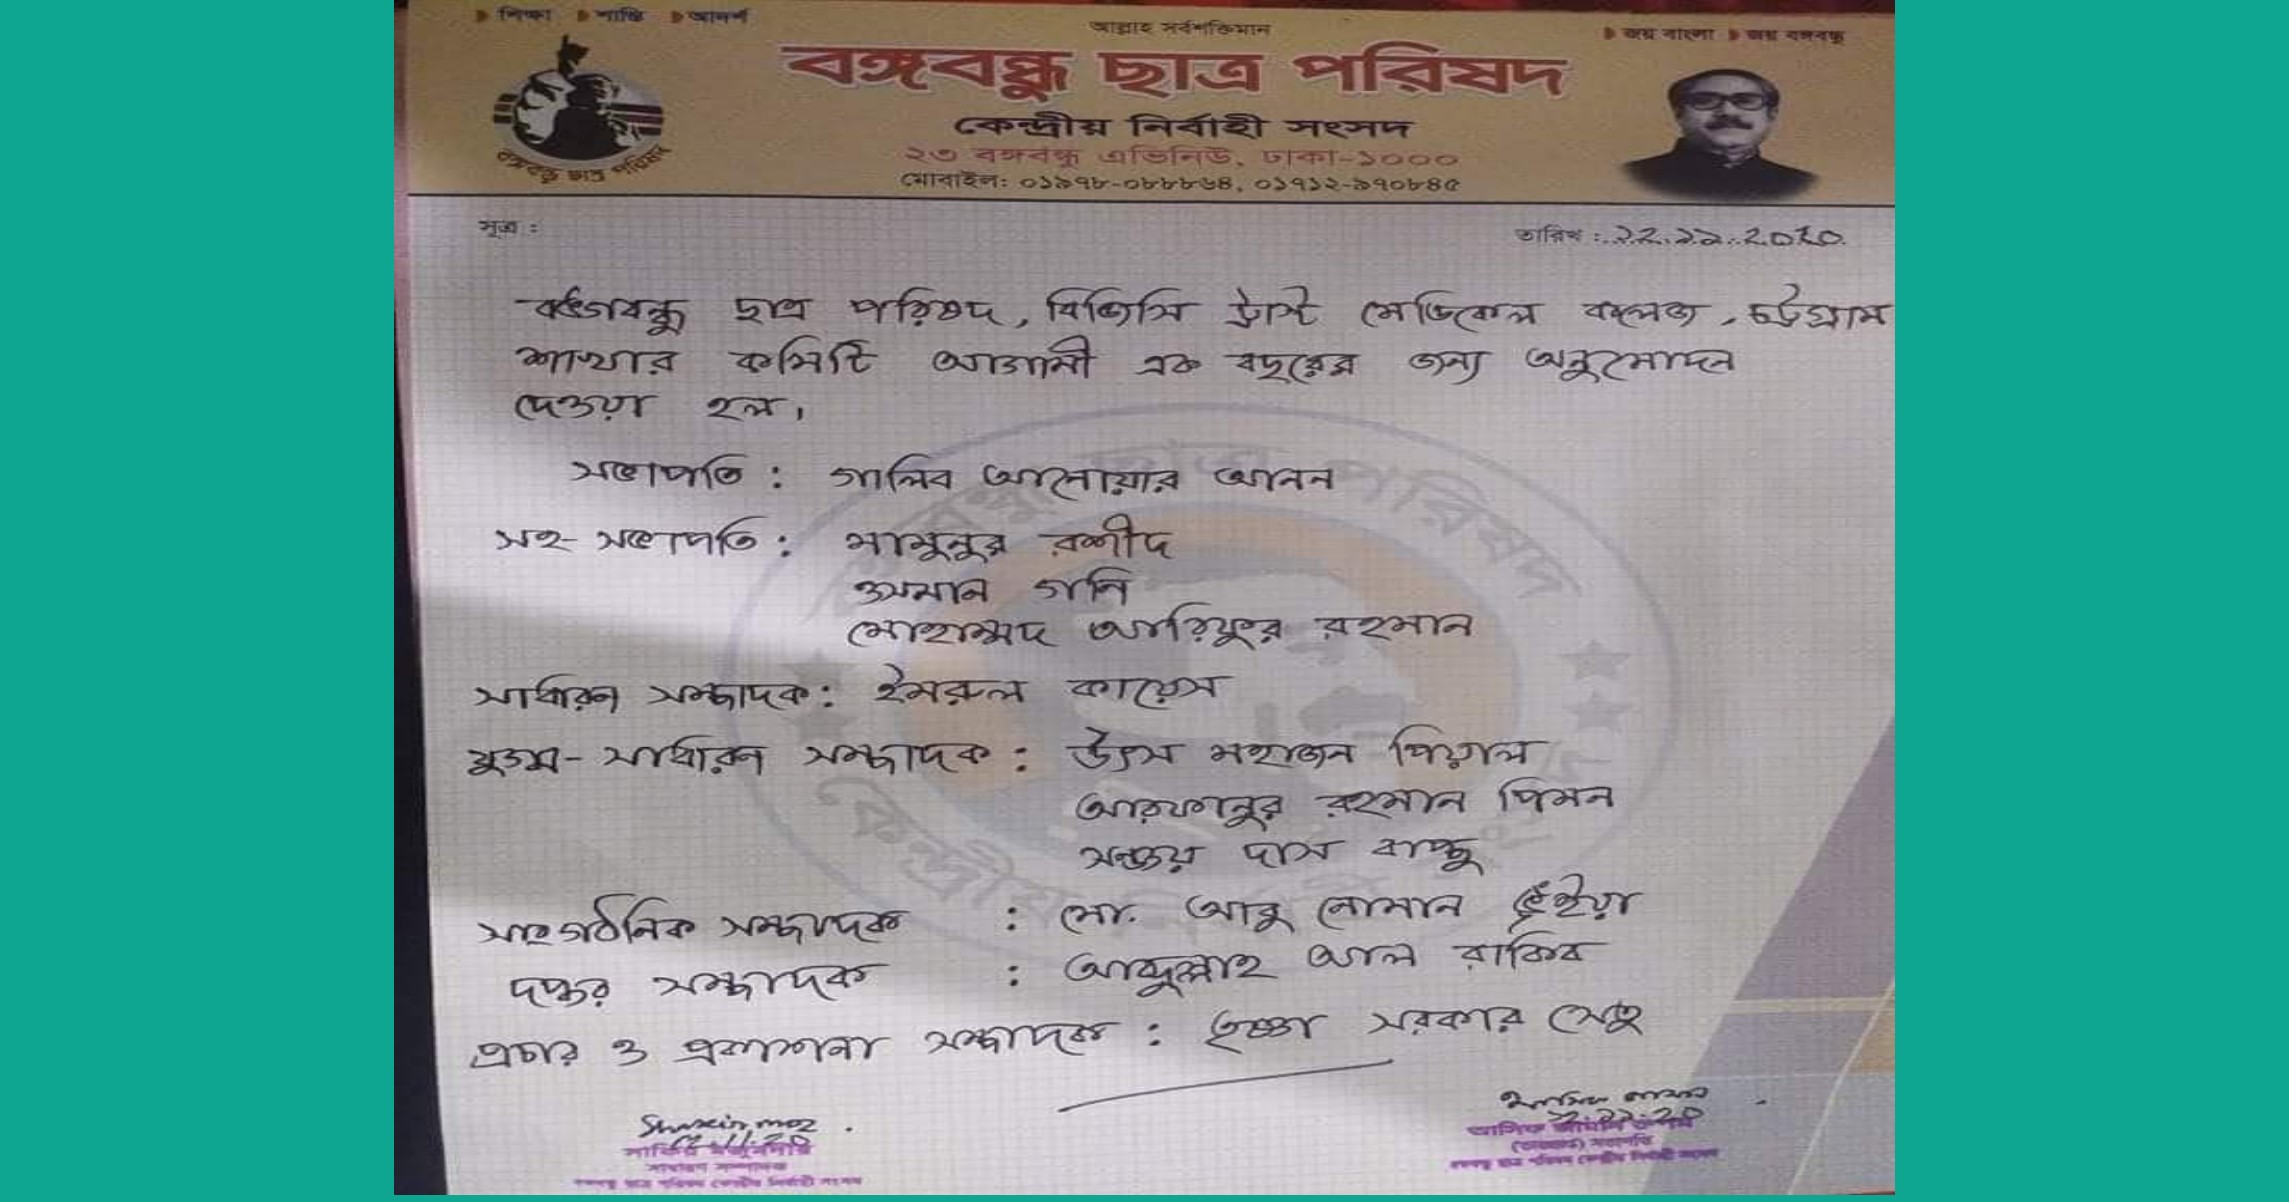 শিক্ষা শান্তি আদর্শ
আল্লাহ সর্বশক্তিমান
জয় বাংলা জয় বঙ্গবন্ধু
বঙ্গবন্ধু ছাত্র পরিষদ
কেন্দ্রীয় নির্বাহী সংসদ
২৩ বঙ্গবন্ধু এভিনিউ, ঢাকা-১০০০
মোবাইল: ০১৯৭৮-০৮৮৮৬৪, ০১৭১২-৯৭০৮৪৫
বঙ্গবন্ধু ছাত্র পরিষদ
সূত্র :
তারিখ : ১২.১১.২০২০
বঙ্গবন্ধু ছাত্র পরিষদ, বিজিসি ট্রাস্ট মেডিকেল কলেজ, চট্টগ্রাম
শাখার কমিটি আগামী এক বছরের জন্য অনুমোদন
দেওয়া হল।
সভাপতি : গালিব আনোয়ার আনন
সহ-সভাপতি : মামুনুর রশীদ
ওসমান গনি
মোহাম্মদ আরিফুর রহমান
সাধারন সম্পাদক : ইমরুল কায়েস
যুগ্ম-সাধারন সম্পাদক : উৎস মহাজন পিয়াল
আরফানুর রহমান পিমন
সঞ্জয় দাস বাপ্পু
সাংগঠনিক সম্পাদক : মো. আবু নোমান ভূঁইয়া
দপ্তর সম্পাদক : আব্দুল্লাহ আল রাকিব
প্রচার ও প্রকাশনা সম্পাদক : তৃষ্ণা সরকার সেতু
সাধারণ সম্পাদক
বঙ্গবন্ধু ছাত্র পরিষদ কেন্দ্রীয় নির্বাহী সংসদ
(ভারপ্রাপ্ত) সভাপতি
বঙ্গবন্ধু ছাত্র পরিষদ কেন্দ্রীয় নির্বাহী সংসদ